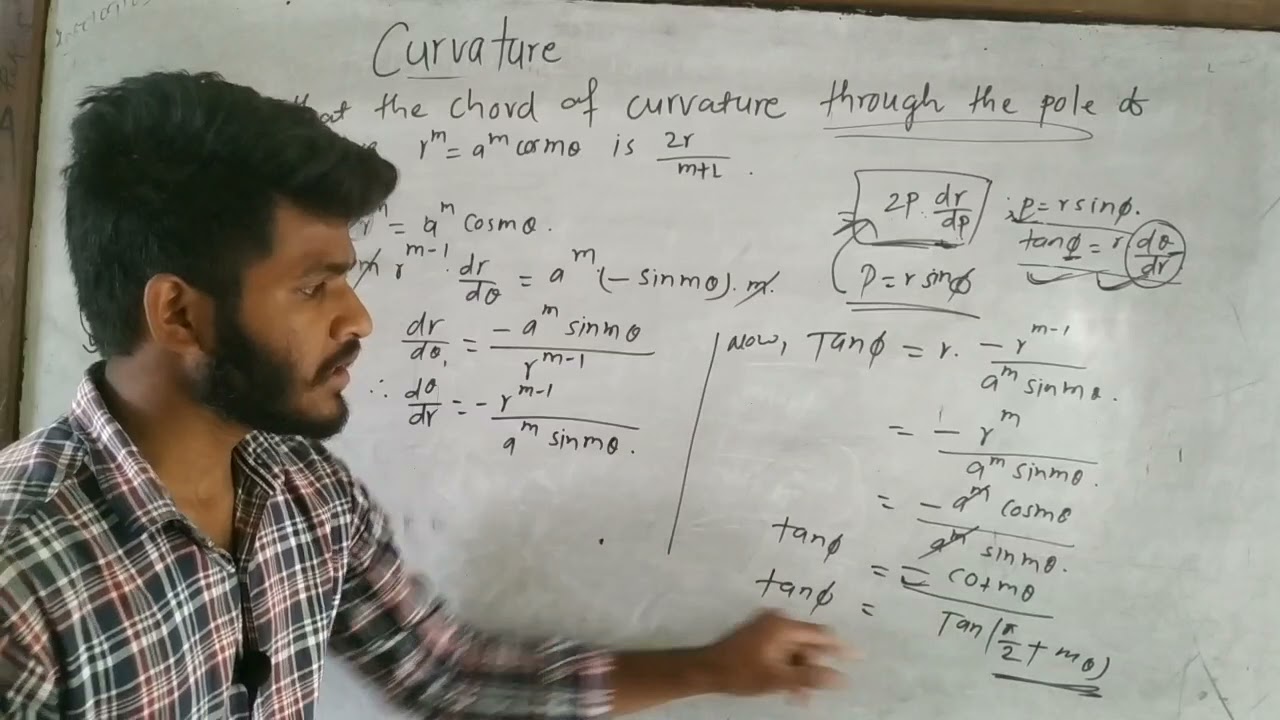 Curvature
that the chord of curvature through the pole of
r^m = a^m cosmθ is 2r/(m+1).
r^m = a^m cosmθ.
m r^(m-1) · dr/dθ = a^m · (- sinmθ) · m.
dr/dθ = - a^m sinmθ / r^(m-1)
∴ dθ/dr = - r^(m-1) / a^m sinmθ.
= 2P · dr/dp ; p = r sinφ.
tanφ = r dθ/dr
P = r sinφ
Now, Tanφ = r · - r^(m-1) / a^m sinmθ.
= - r^m / a^m sinmθ.
= - a^m cosmθ / a^m sinmθ.
tanφ = - cotmθ
tanφ = Tan(π/2 + mθ)